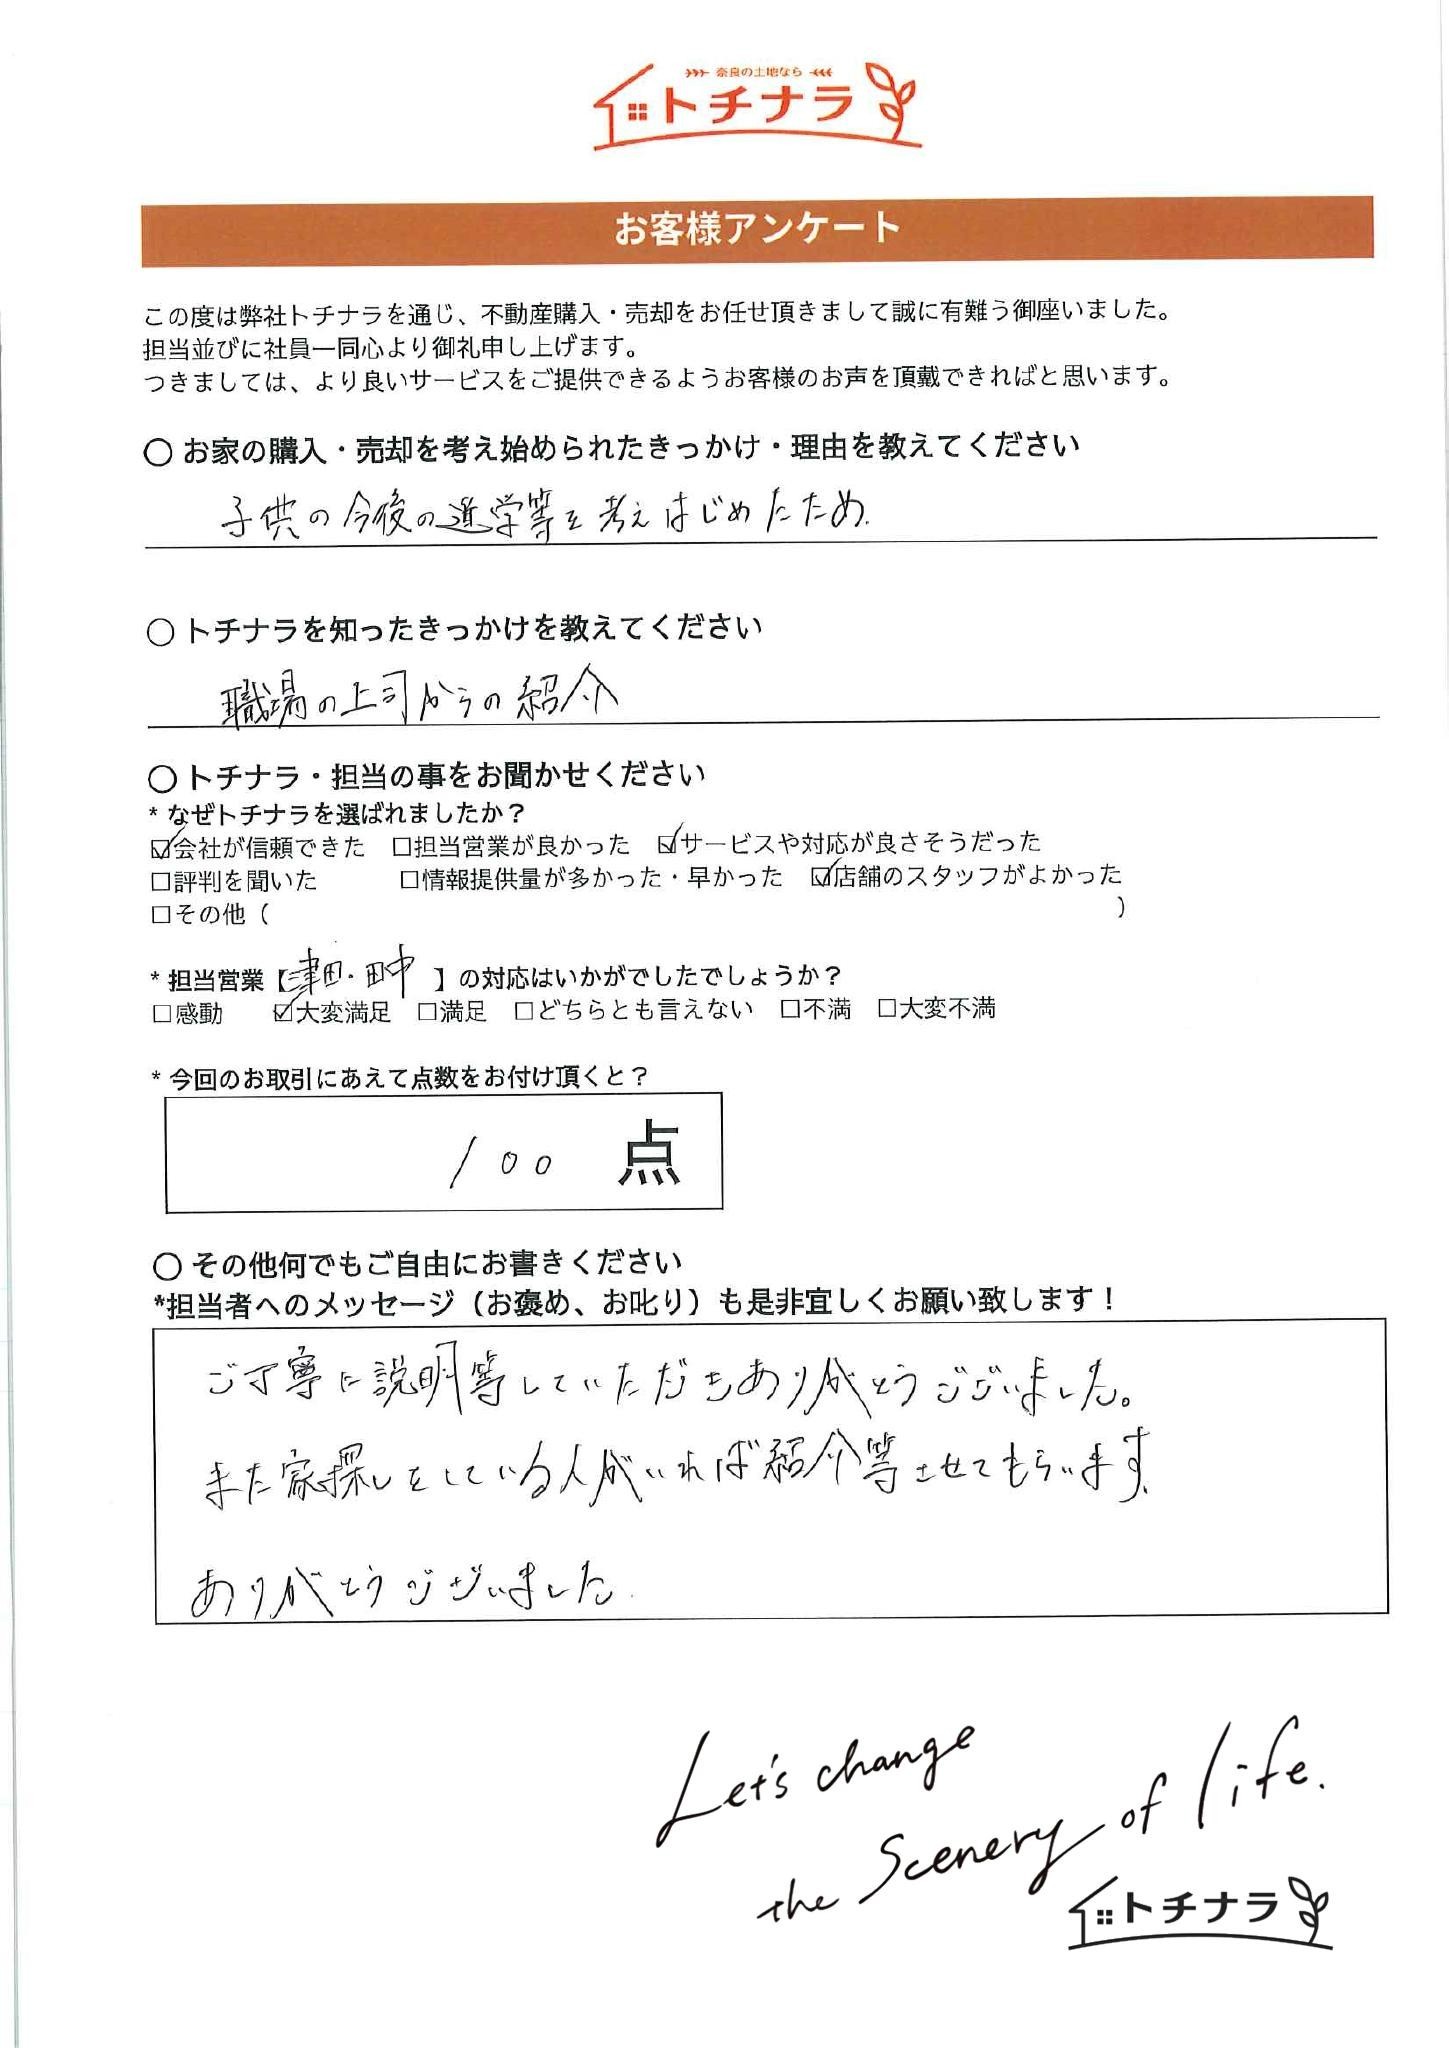 奈良の土地なら
トチナラ
お客様アンケート
この度は弊社トチナラを通じ、不動産購入・売却をお任せ頂きまして誠に有難う御座いました。
担当並びに社員一同心より御礼申し上げます。
つきましては、より良いサービスをご提供できるようお客様のお声を頂戴できればと思います。
○ お家の購入・売却を考え始められたきっかけ・理由を教えてください
子供の今後の進学等を考えはじめたため.
○ トチナラを知ったきっかけを教えてください
職場の上司からの紹介
○ トチナラ・担当の事をお聞かせください
* なぜトチナラを選ばれましたか？
☑会社が信頼できた □担当営業が良かった ☑サービスや対応が良さそうだった
□評判を聞いた □情報提供量が多かった・早かった ☑店舗のスタッフがよかった
□その他（ ）
* 担当営業【津田・田中】の対応はいかがでしたでしょうか？
□感動 ☑大変満足 □満足 □どちらとも言えない □不満 □大変不満
* 今回のお取引にあえて点数をお付け頂くと？
100 点
○ その他何でもご自由にお書きください
*担当者へのメッセージ（お褒め、お叱り）も是非宜しくお願い致します！
ご丁寧に説明等していただきありがとうございました。
また家探しをしている人がいれば紹介等させてもらいます.
ありがとうございました.
Let's change
the Scenery of life.
トチナラ